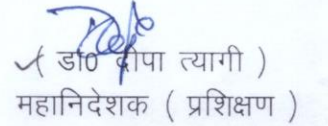 ( डा० दीपा त्यागी )
महानिदेशक ( प्रशिक्षण )